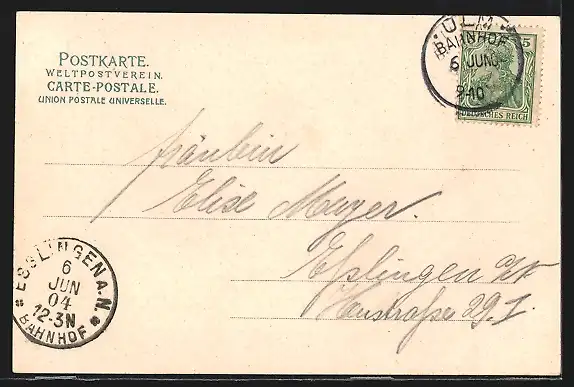 POSTKARTE.
WELTPOSTVEREIN.
CARTE-POSTALE.
UNION POSTALE UNIVERSELLE.
ULM
BAHNHOF
6 JUN
9-10
5
DEUTSCHES REICH
Fräulein
Elise Mayer.
Esslingen a/N
29. I.
ESSLINGEN A.N.
6
JUN
04
12-3N
BAHNHOF